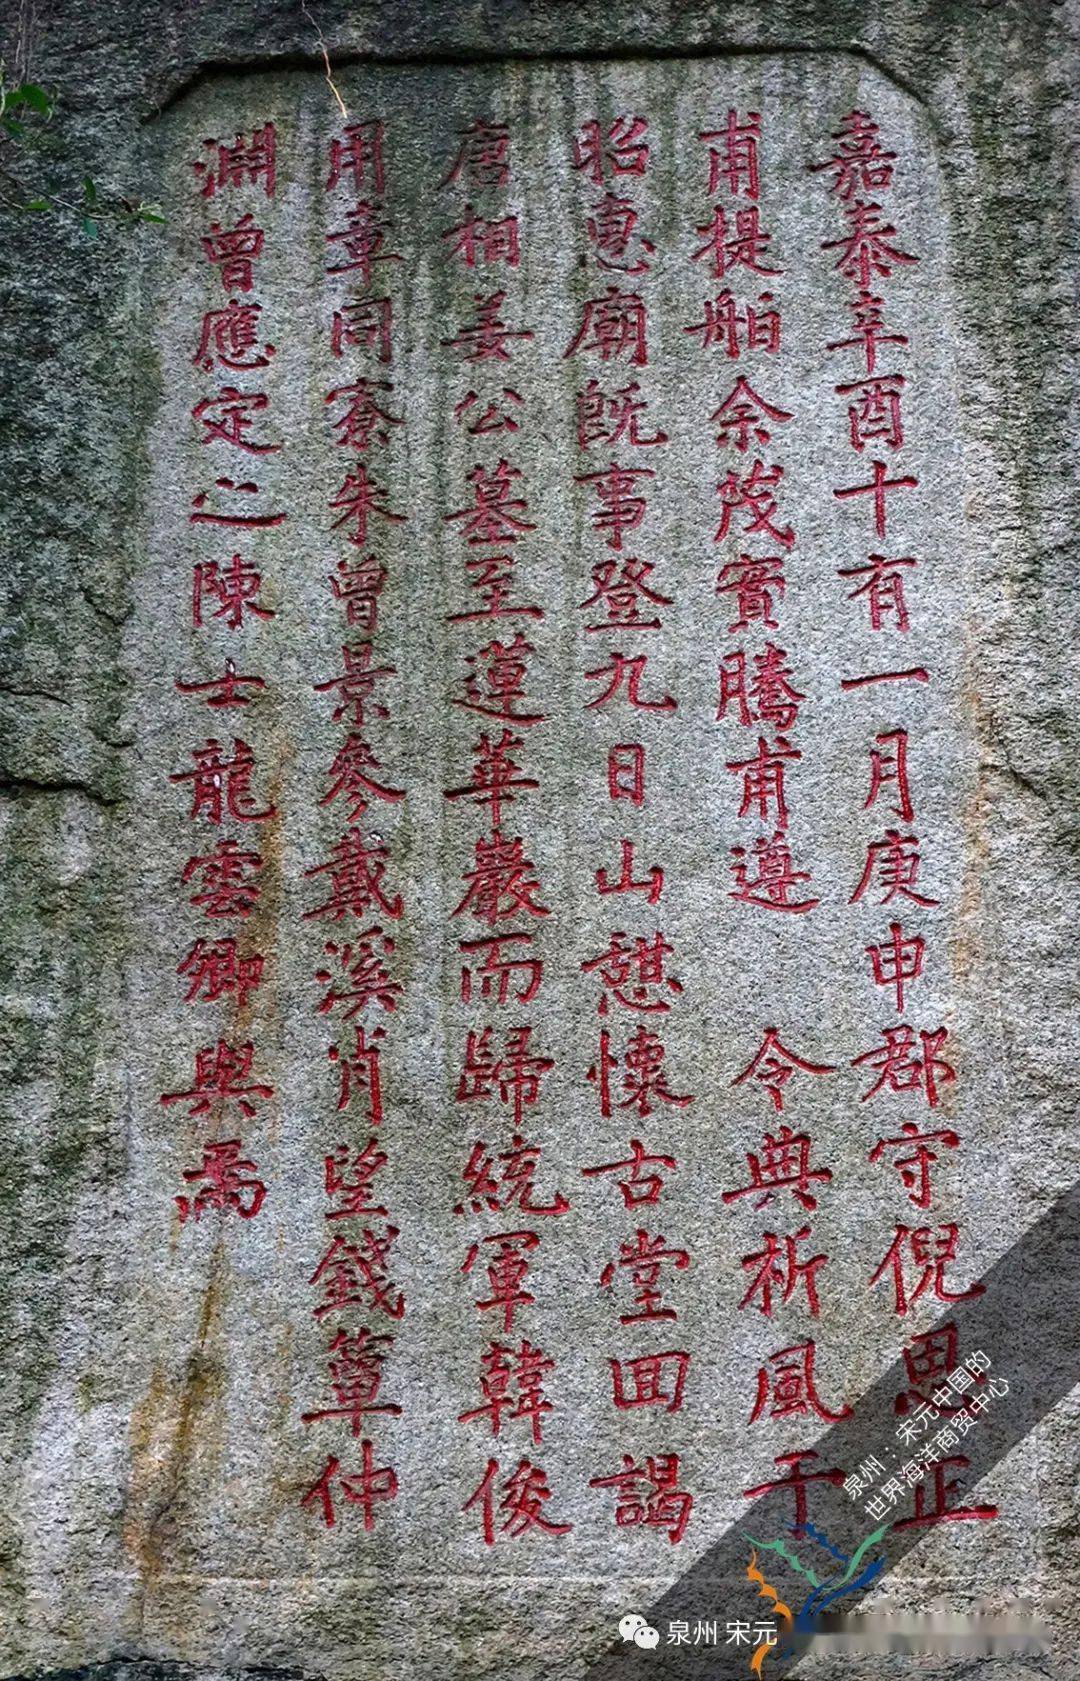 嘉泰辛酉十有一月庚申郡守倪思正
甫提舶余茂實騰甫遵　令典祈風于
昭惠廟既事登九日山憇懷古堂回謁
唐相姜公墓至蓮華巖而歸統軍韓俊
用章同寮朱曾景參戴溪肖望錢箄仲
淵曾應定之陳士龍雲卿與焉
泉州：宋元中国的
世界海洋商贸中心
泉州 宋元